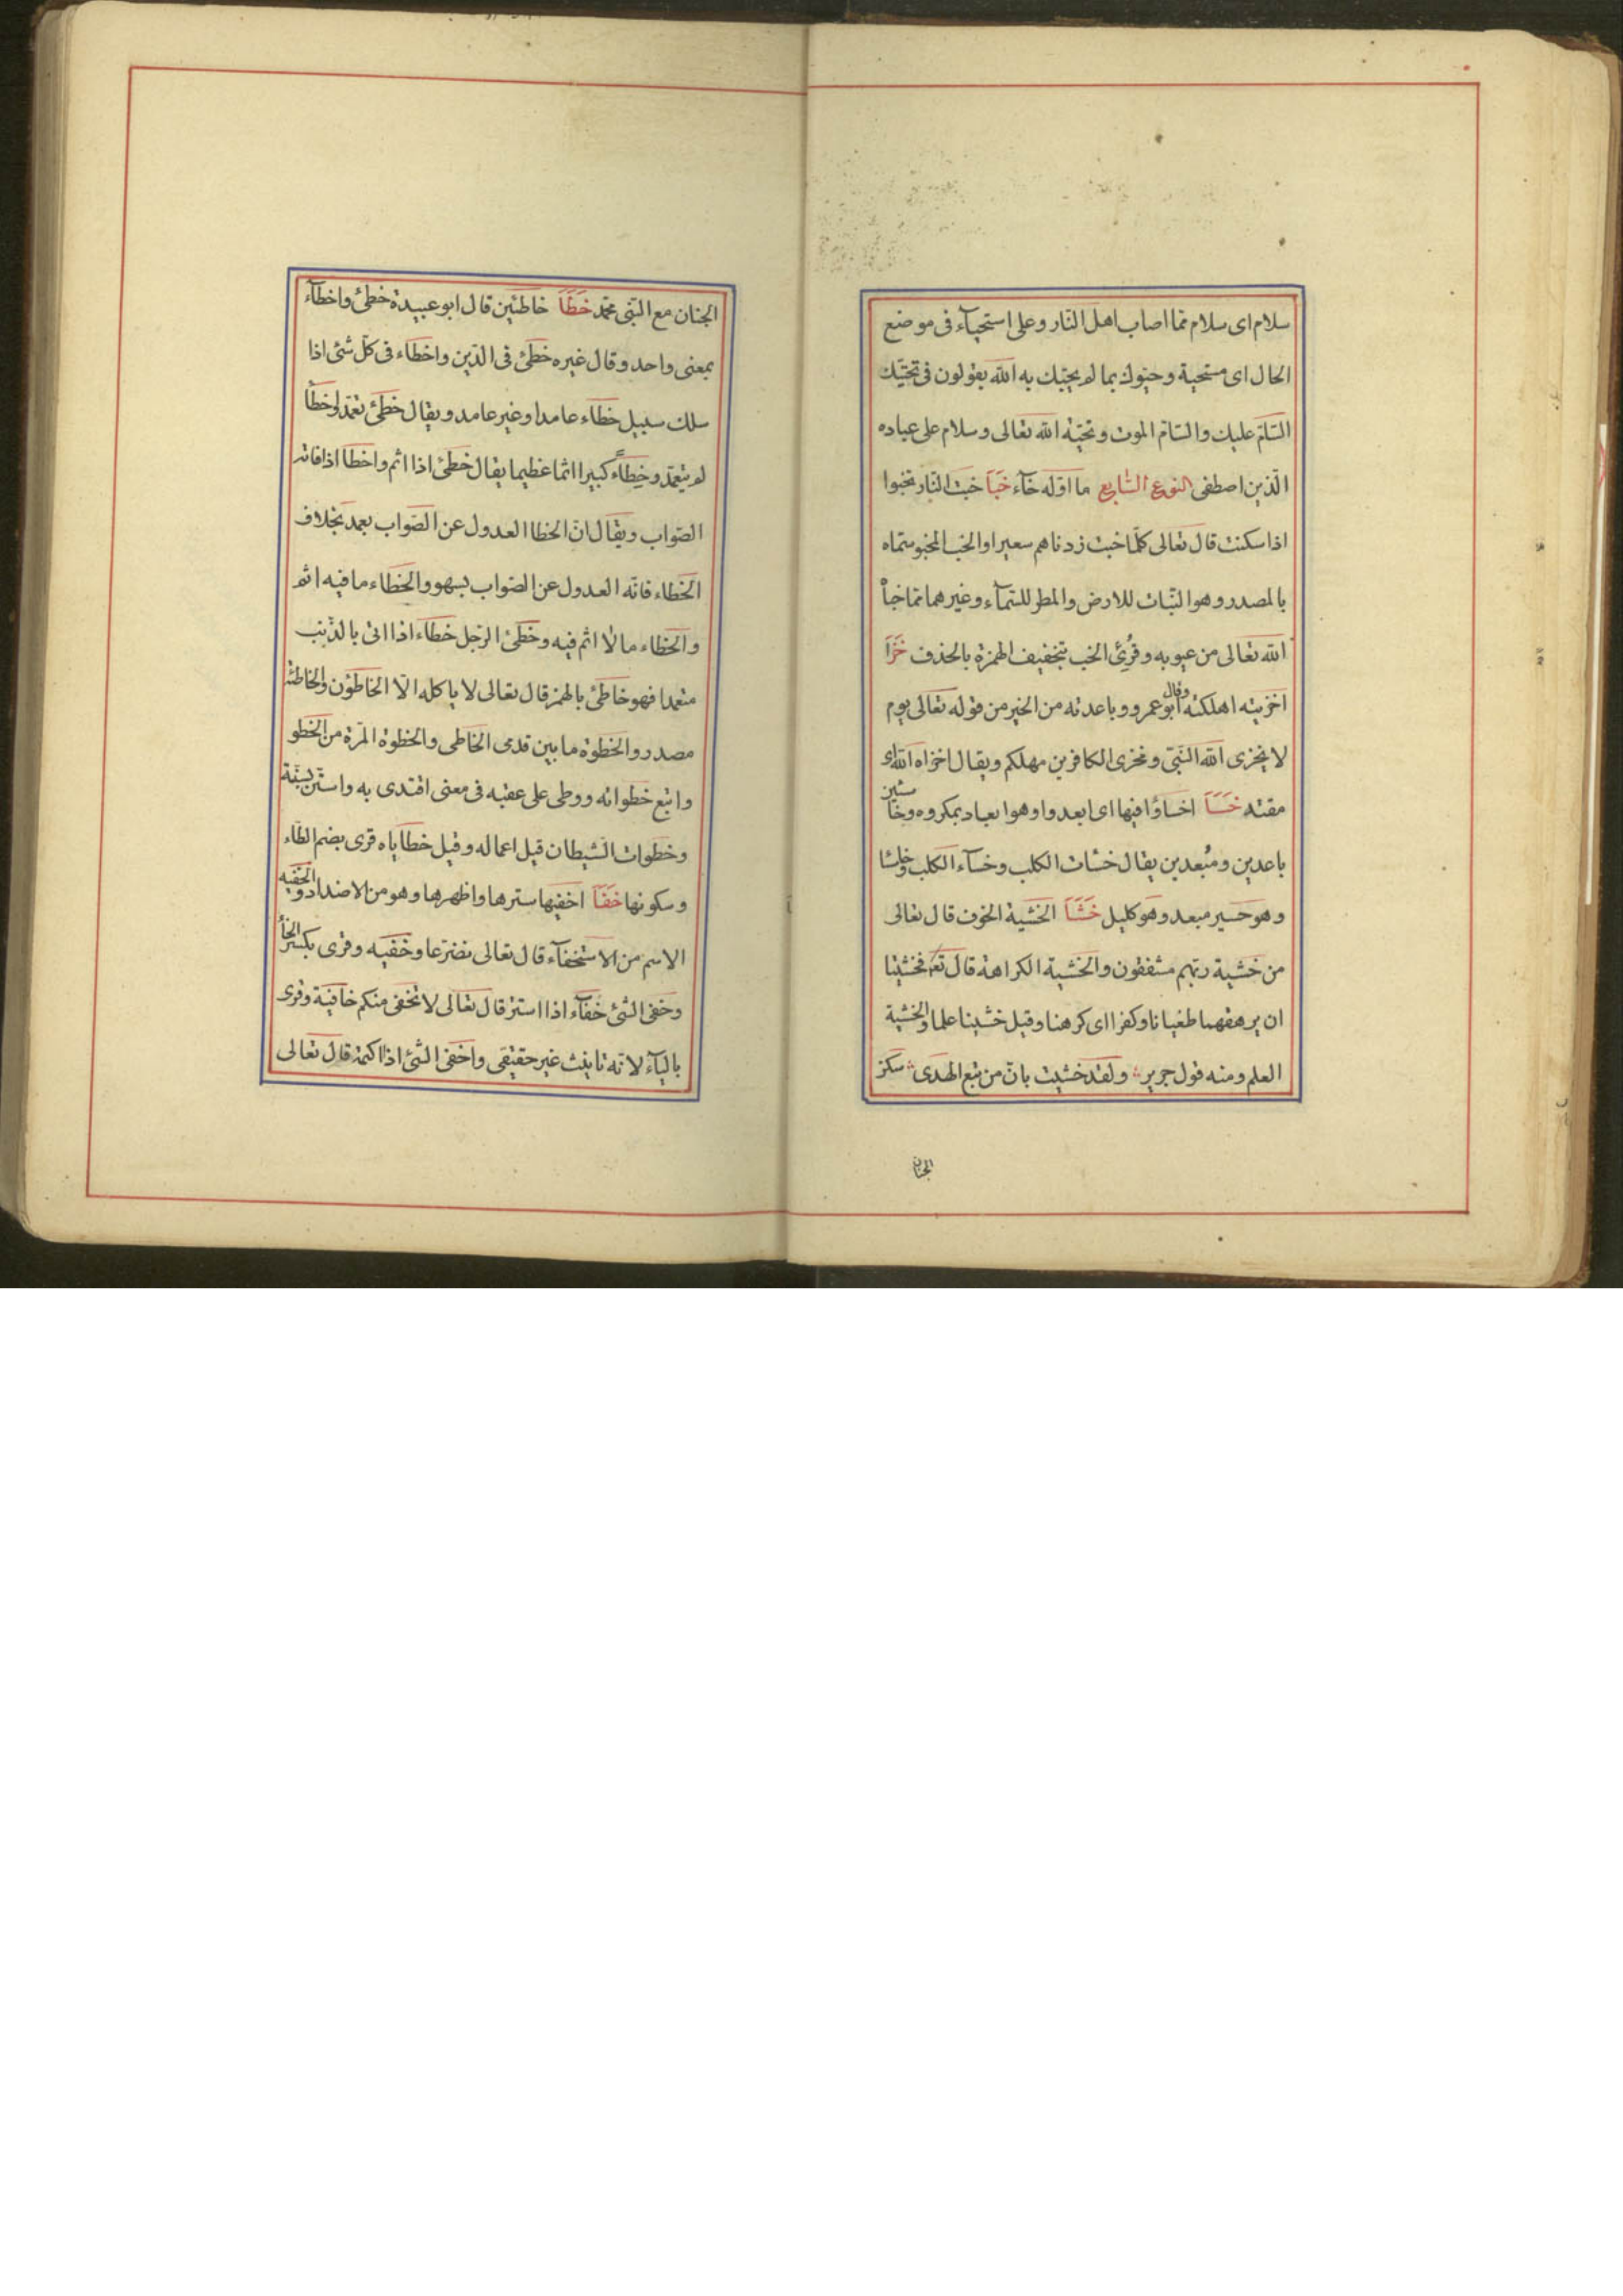 سلام اى سلام مما اصاب اهل النّار وعلى استحيآء فى موضع
الحال اى مستحية وحيّوك بما لم يحيّك به الله يقولون فى تحيّتك
السّام عليك والسّام الموت وتحيّة الله تعالى وسلام على عباده
الّذين اصطفى النوع السّابع ما اوّله خآء خَبَاَ خبت النّار تخبوا
اذا سكنت قال تعالى كلّما خبت زدناهم سعيرا والخبء المخبو سمّاه
بالمصدر وهو النّبات للارض والمطر للسّمآء وغيرهما ممّا خبأ
الله تعالى من غيوبه وقُرِئ الخب بتخفيف الهمزة بالحذف خَزَاَ
اخزيته اهلكته وقال ابو عمرو وباعدته من الخير من قوله تعالى يوم
لا يخزى الله النّبىّ ومخزى الكافرين مهلكم ويقال اخزاه الله اى
مقته خَسَاَ اخساؤا فيها اى ابعدوا وهو ابعاد بمكروه وخاسئين
باعدين ومُبعدين يقال خسات الكلب وخسآء الكلب وخاسئا
وهو حسير مبعد وهو كليل خَشَاَ الخشية الخوف قال تعالى
من خشية ربّهم مشفقون والخشية الكراهة قال تعم فخشينا
ان يرهقهما طغيانا وكفرا اى كرهنا وقيل خشينا علما والخشية
العلم ومنه قول جرير ولقد خشيت بانّ من تبع الهدى سكن
الجنان
الجنان مع النّبى محمّد خَطَاَ خاطئين قال ابو عبيدة خطئ واخطآء
بمعنى واحد وقال غيره خطئ فى الدّين واخطاء فى كلّ شئ اذا
سلك سبيل خطاء عامدا وغير عامد ويقال خطئ تعمّد وخطأ
لم يتعمّد وخِطاءً كبيرا اثما عظيما يقال خطئ اذا اثم واخطا اذا فاته
الصّواب ويقال انّ الخطا العدول عن الصّواب بعمد بخلاف
الخطاء فانّه العدول عن الصّواب بسهو والخطاء ما فيه اثم
والخطاء ما لا اثم فيه وخطئ الرّجل خطاء اذا اتى بالذّنب
متعمدا فهو خاطئ بالهمز قال تعالى لا ياكله الّا الخاطؤن والخاطئة
مصدر والخطوة ما بين قدمى الخاطى والخطوة المرّة من الخطو
واتبع خطواته ووطى على عقبه فى معنى اقتدى به واستنّ بسنّة
وخطوات الشيطان قيل اعماله وقيل خطاياه قرى بضم الطّاء
وسكونها خَفَاَ اخفيها استرها واظهرها وهو من الاضداد والخفيه
الاسم من الاستخفآء قال تعالى تضرّعا وخفيه وقرى بكسر الخأ
وخفى الشّئ خفآء اذا استتر قال تعالى لا تخفى منكم خافية وقرى
باليآء لانّه تانيث غير حقيقى واخفى الشّئ اذا اكتمه قال تعالى